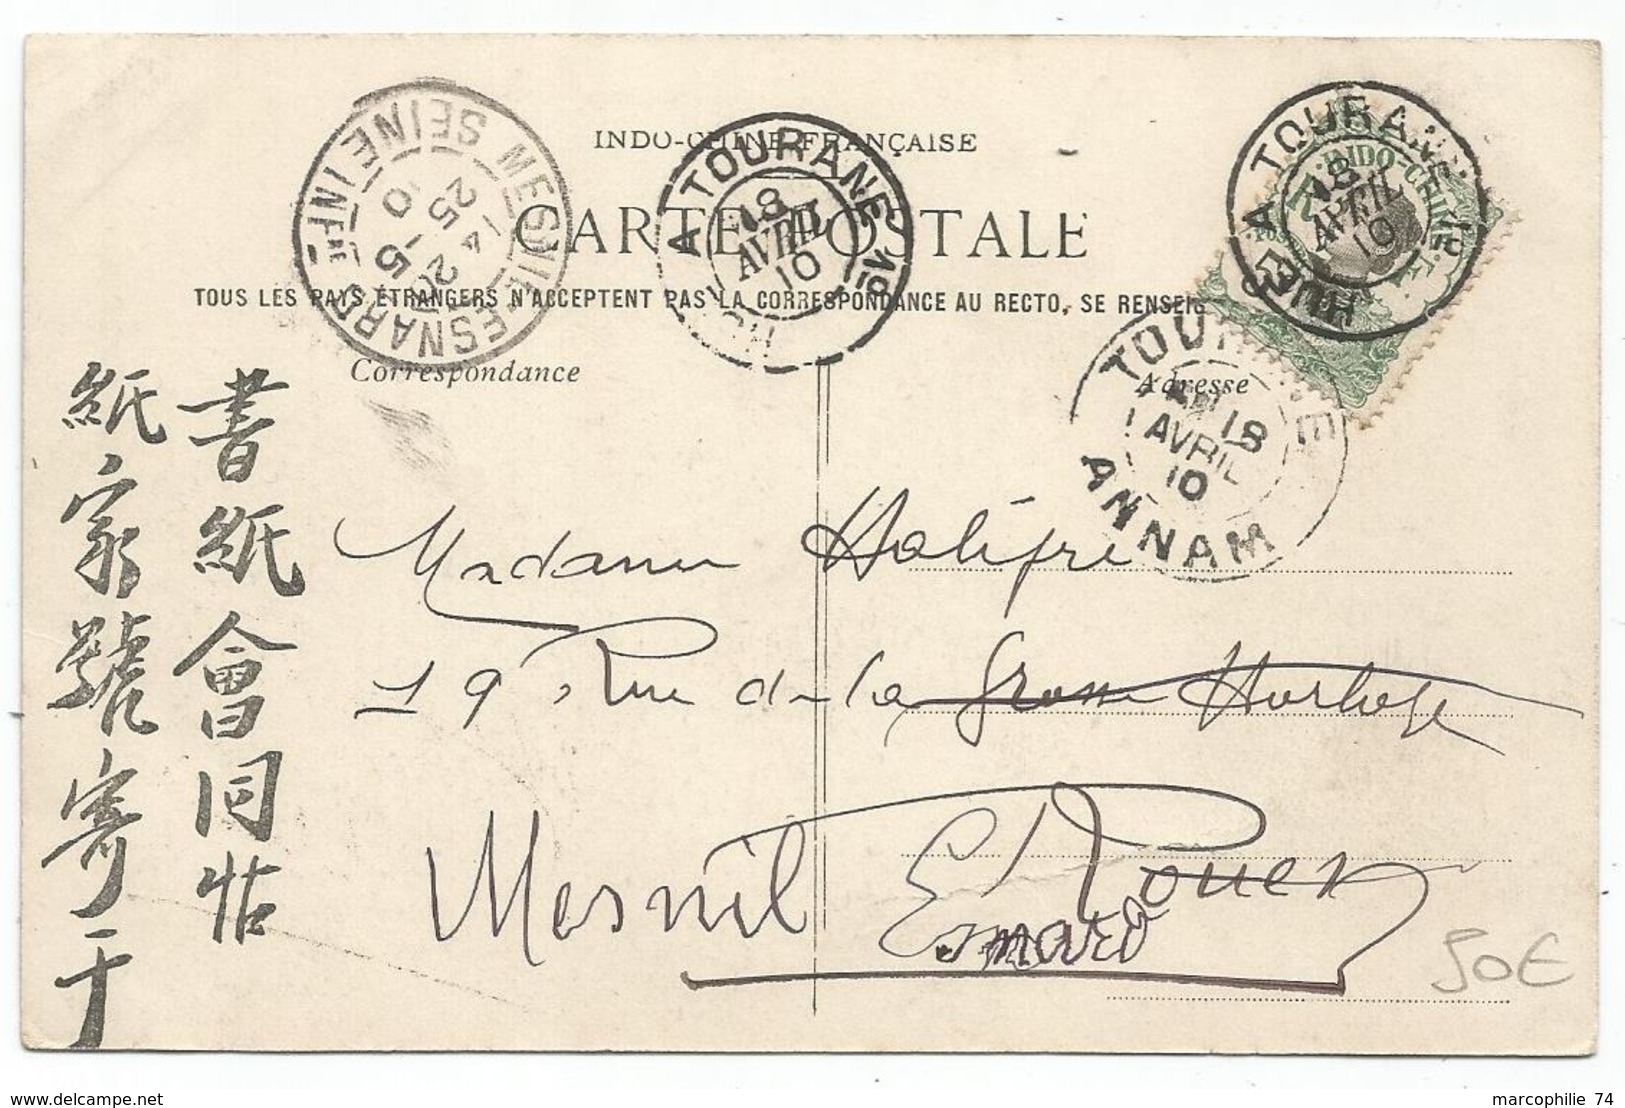 INDO-CHINE FRANÇAISE
CARTE POSTALE
TOUS LES PAYS ÉTRANGERS N'ACCEPTENT PAS LA CORRESPONDANCE AU RECTO, SE RENSEIG
Correspondance
Adresse
MESNIL-ESNARD SEINE INFRE
25
HUÉ A TOURANE
18
AVRIL
10
HUÉ A TOURANE
18
AVRIL
10
INDO-CHINE
TOURANE ANNAM
18
AVRIL
10
書紙會同
紙家號寄于
Madame
19 Rue de la Grosse Horloge
Rouen
Mesnil Esnard
50€
www.delcampe.net
marcophilie 74